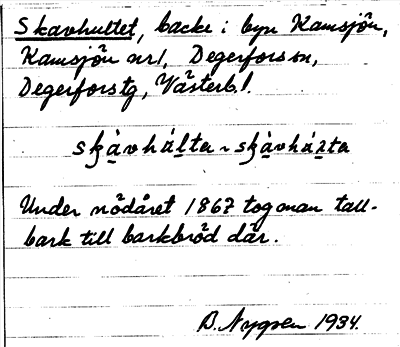 Skavhultet, backe i byn Kamsjön,
Kamsjön nr 1, Degerfors sn,
Degerforstg, Västerb. l.
skàvhálta ~ skàvháлta
Under nödåret 1867 tog man tall-
bark till barkbröd där.
B. Nygren 1934.